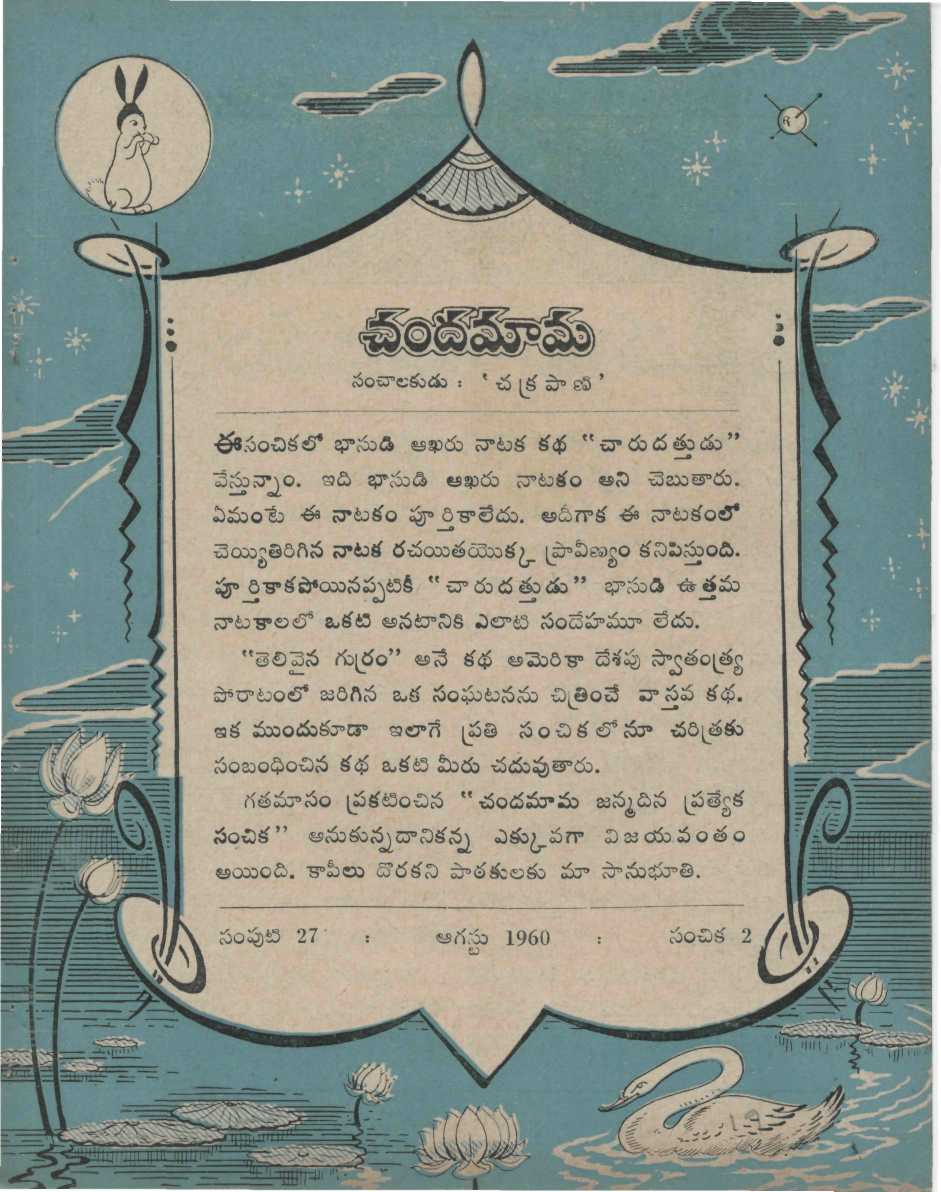 చందమామ
సంచాలకుడు : ‘ చక్రపాణి ’
ఈసంచికలో భాసుడి ఆఖరు నాటక కథ “చారుదత్తుడు”
వేస్తున్నాం. ఇది భాసుడి ఆఖరు నాటకం అని చెబుతారు.
ఏమంటే ఈ నాటకం పూర్తికాలేదు. అదీగాక ఈ నాటకంలో
చెయ్యితిరిగిన నాటక రచయితయొక్క ప్రావీణ్యం కనిపిస్తుంది.
పూర్తికాకపోయినప్పటికీ “చారుదత్తుడు” భాసుడి ఉత్తమ
నాటకాలలో ఒకటి అనటానికి ఎలాటి సందేహమూ లేదు.
“తెలివైన గుర్రం” అనే కథ అమెరికా దేశపు స్వాతంత్ర్య
పోరాటంలో జరిగిన ఒక సంఘటనను చిత్రించే వాస్తవ కథ.
ఇక ముందుకూడా ఇలాగే ప్రతి సంచికలోనూ చరిత్రకు
సంబంధించిన కథ ఒకటి మీరు చదువుతారు.
గతమాసం ప్రకటించిన “చందమామ జన్మదిన ప్రత్యేక
సంచిక” అనుకున్నదానికన్న ఎక్కువగా విజయవంతం
అయింది. కాపీలు దొరకని పాఠకులకు మా సానుభూతి.
సంపుటి 27 : ఆగస్టు 1960 : సంచిక 2